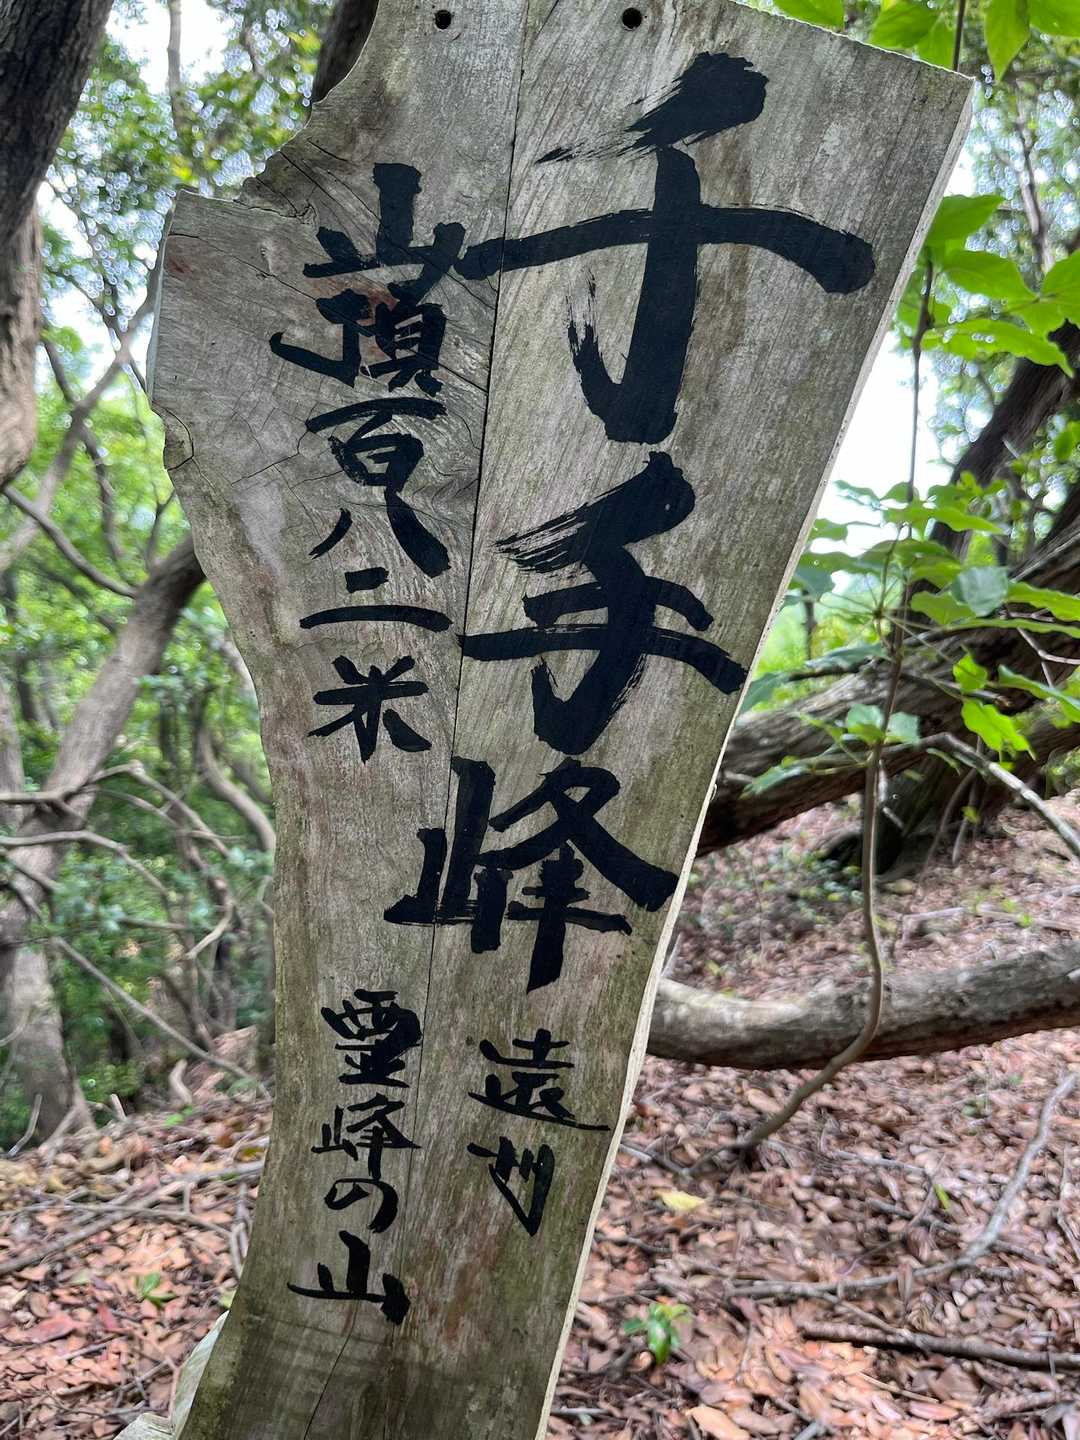 千手峰 遠州
山頂百八二米 霊峰の山